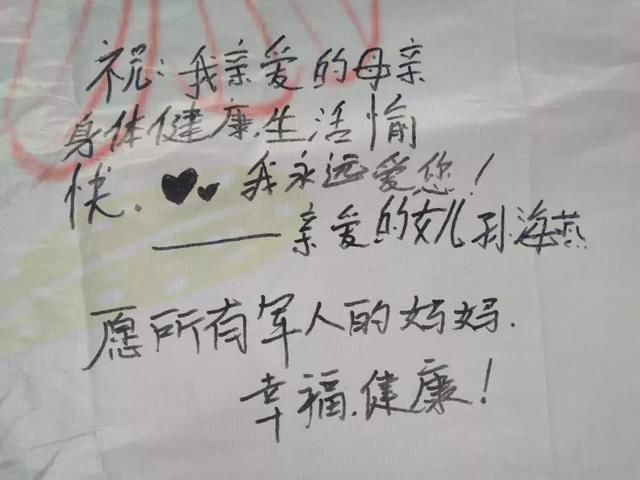 祝:我亲爱的母亲
身体健康.生活愉
快. ♥♥ 我永远爱您!
——亲爱的女儿孙海燕
愿所有军人的妈妈.
幸福.健康!